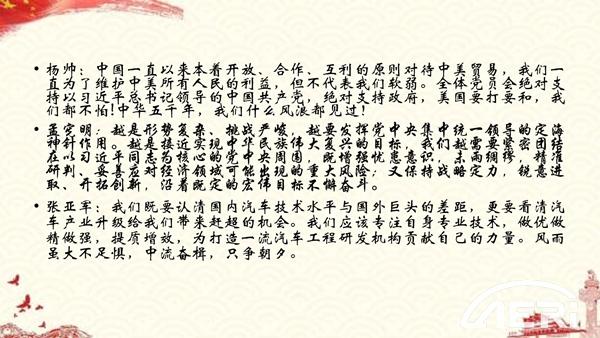 杨帅：中国一直以来本着开放、合作、互利的原则对待中美贸易，我们一
直为了维护中美所有人民的利益，但不代表我们软弱。全体党员会绝对支
持以习近平总书记领导的中国共产党，绝对支持政府，美国要打要和，我
们都不怕!中华五千年，我们什么风浪都见过！
孟宪明：越是形势复杂、挑战严峻，越要发挥党中央集中统一领导的定海
神针作用。越是接近实现中华民族伟大复兴的目标，我们越需要紧密团结
在以习近平同志为核心的党中央周围，既增强忧患意识，未雨绸缪，精准
研判、妥善应对经济领域可能出现的重大风险；又保持战略定力，锐意进
取、开拓创新，沿着既定的宏伟目标不懈奋斗。
张亚军：我们既要认清国内汽车技术水平与国外巨头的差距，更要看清汽
车产业升级给我们带来赶超的机会。我们应该专注自身专业技术，做优做
精做强，提质增效，为打造一流汽车工程研发机构贡献自己的力量。风雨
虽大不足惧，中流奋楫，只争朝夕。
AERI